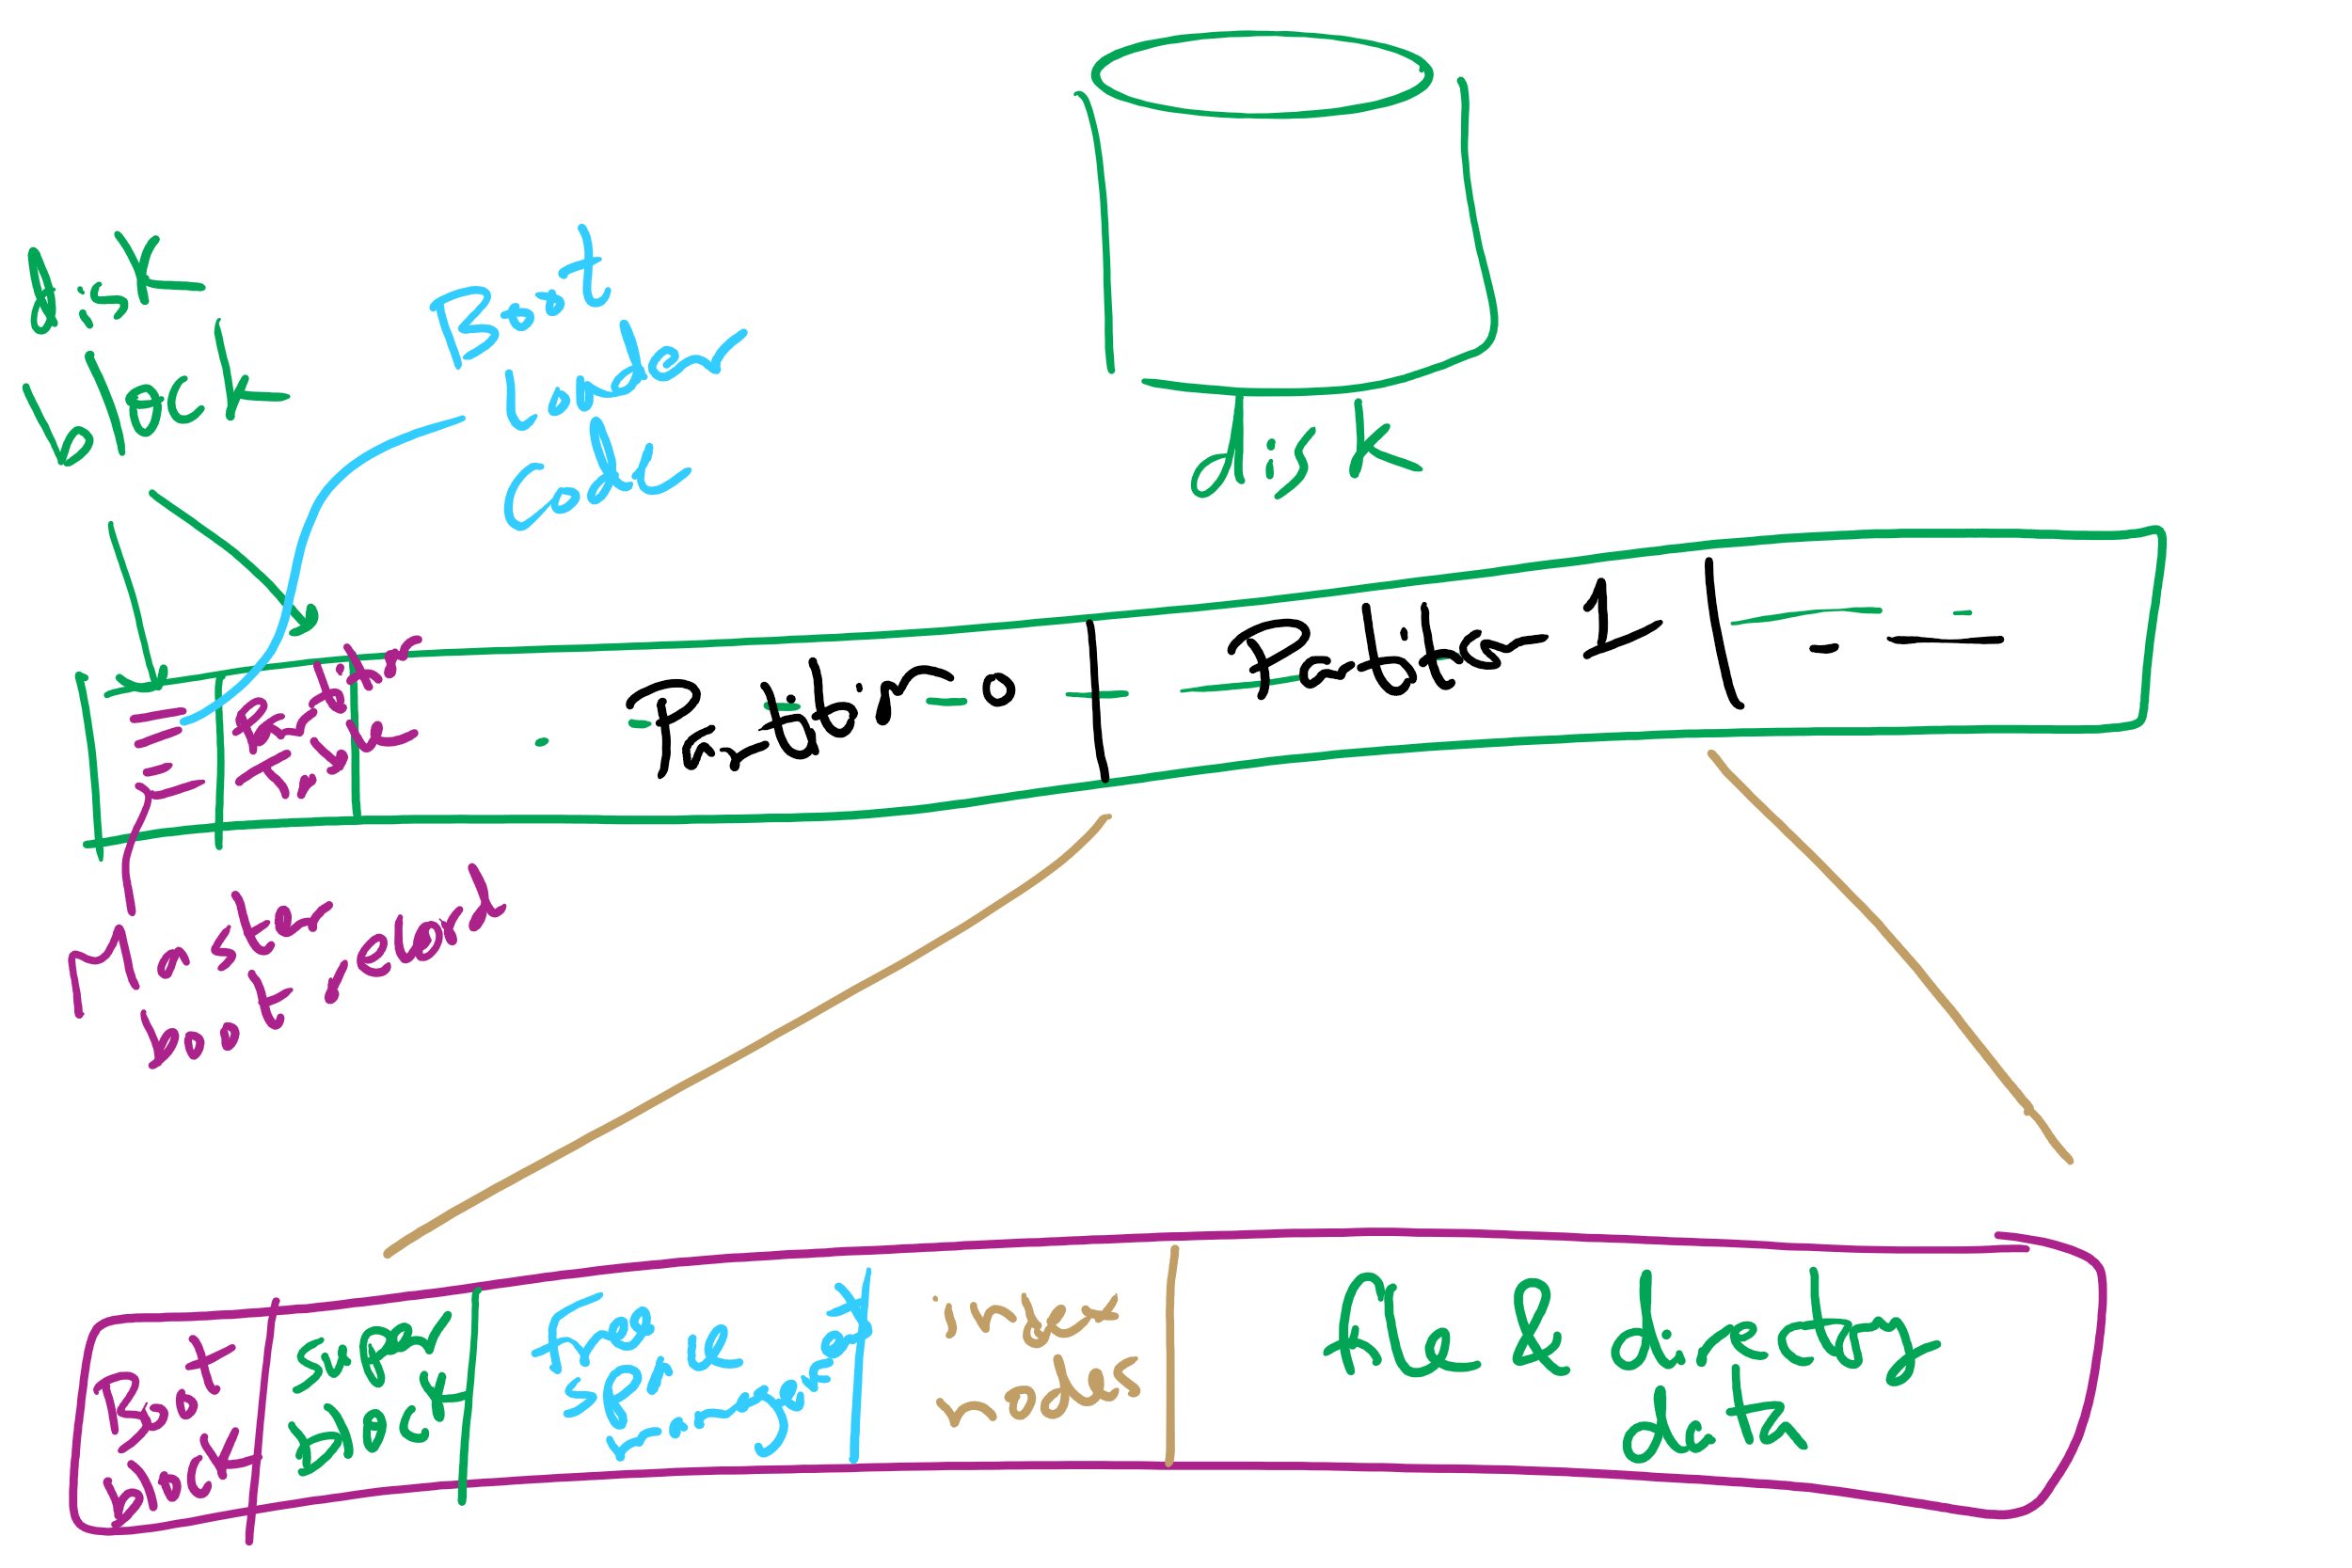 disk
block
Boot
loader
Code
disk
Partition
Table
Partition 0
Partition 1
Master
boot record
Boot
block
super
block
Free space
management
index
nodes
file & directory
data